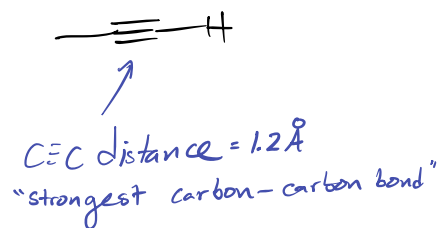 H
C≡C distance = 1.2 Å
"strongest carbon-carbon bond"